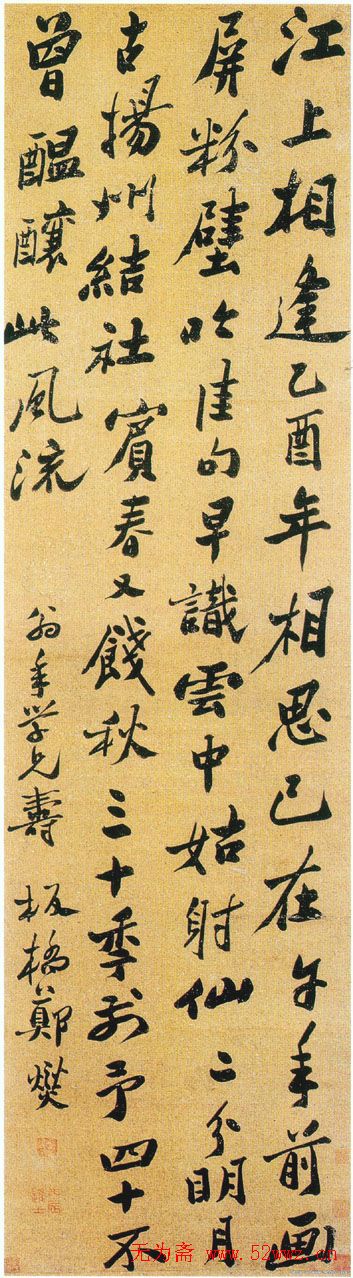 江上相逢乙酉年相思已在午年前画
屏粉壁吟佳句早識雲中姑射仙二分明月
古揚州結社賓春又餞秋三十秊前予四十不
曾醖釀此風流
翁年学兄壽 板橋鄭燮
无为斋 www.52wwz.cn